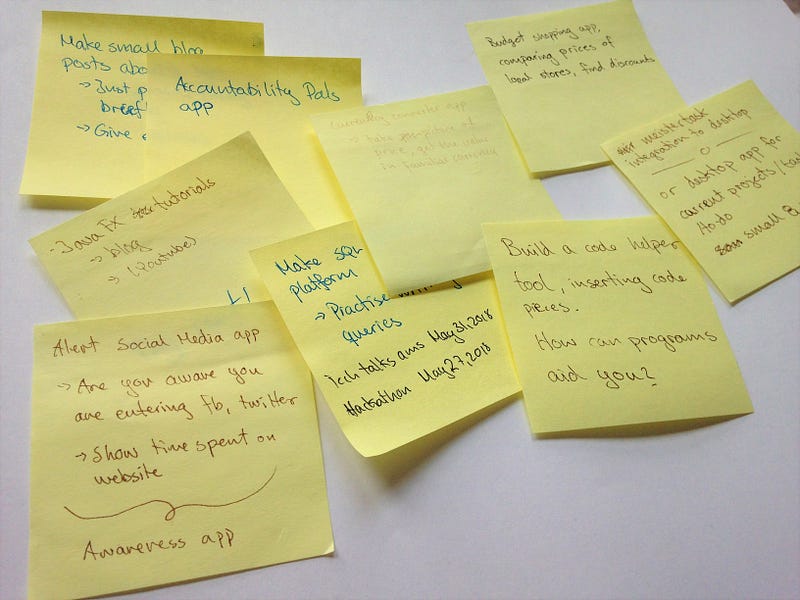 Make small blog
posts abo
→ Just p
breef
→ Give e
Accountability Pals
app
Currency converter app
→ take picture of
price, get the value
in familiar currency
Budget shopping app,
comparing prices of
local stores, find discounts
meistertask
integration to desktop
o
or desktop app for
current projects/
to do
small
- Java FX tutorials
→ blog
→ (Youtube)
Make SQL
platform
→ Practise
queries
Tech talks ams May 31, 2018
Hackathon May 27, 2018
Build a code helper
tool, inserting code
pieces.
How can programs
aid you?
Alert Social Media app
→ Are you aware you
are entering fb, twitter
→ Show time spent on
website
Awareness app